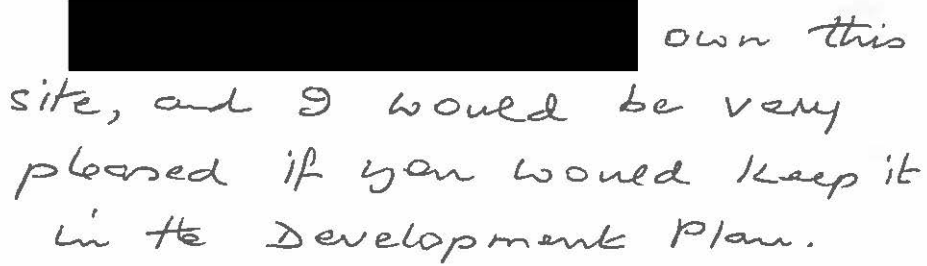 own this
site, and I would be very
pleased if you would keep it
in the Development Plan.